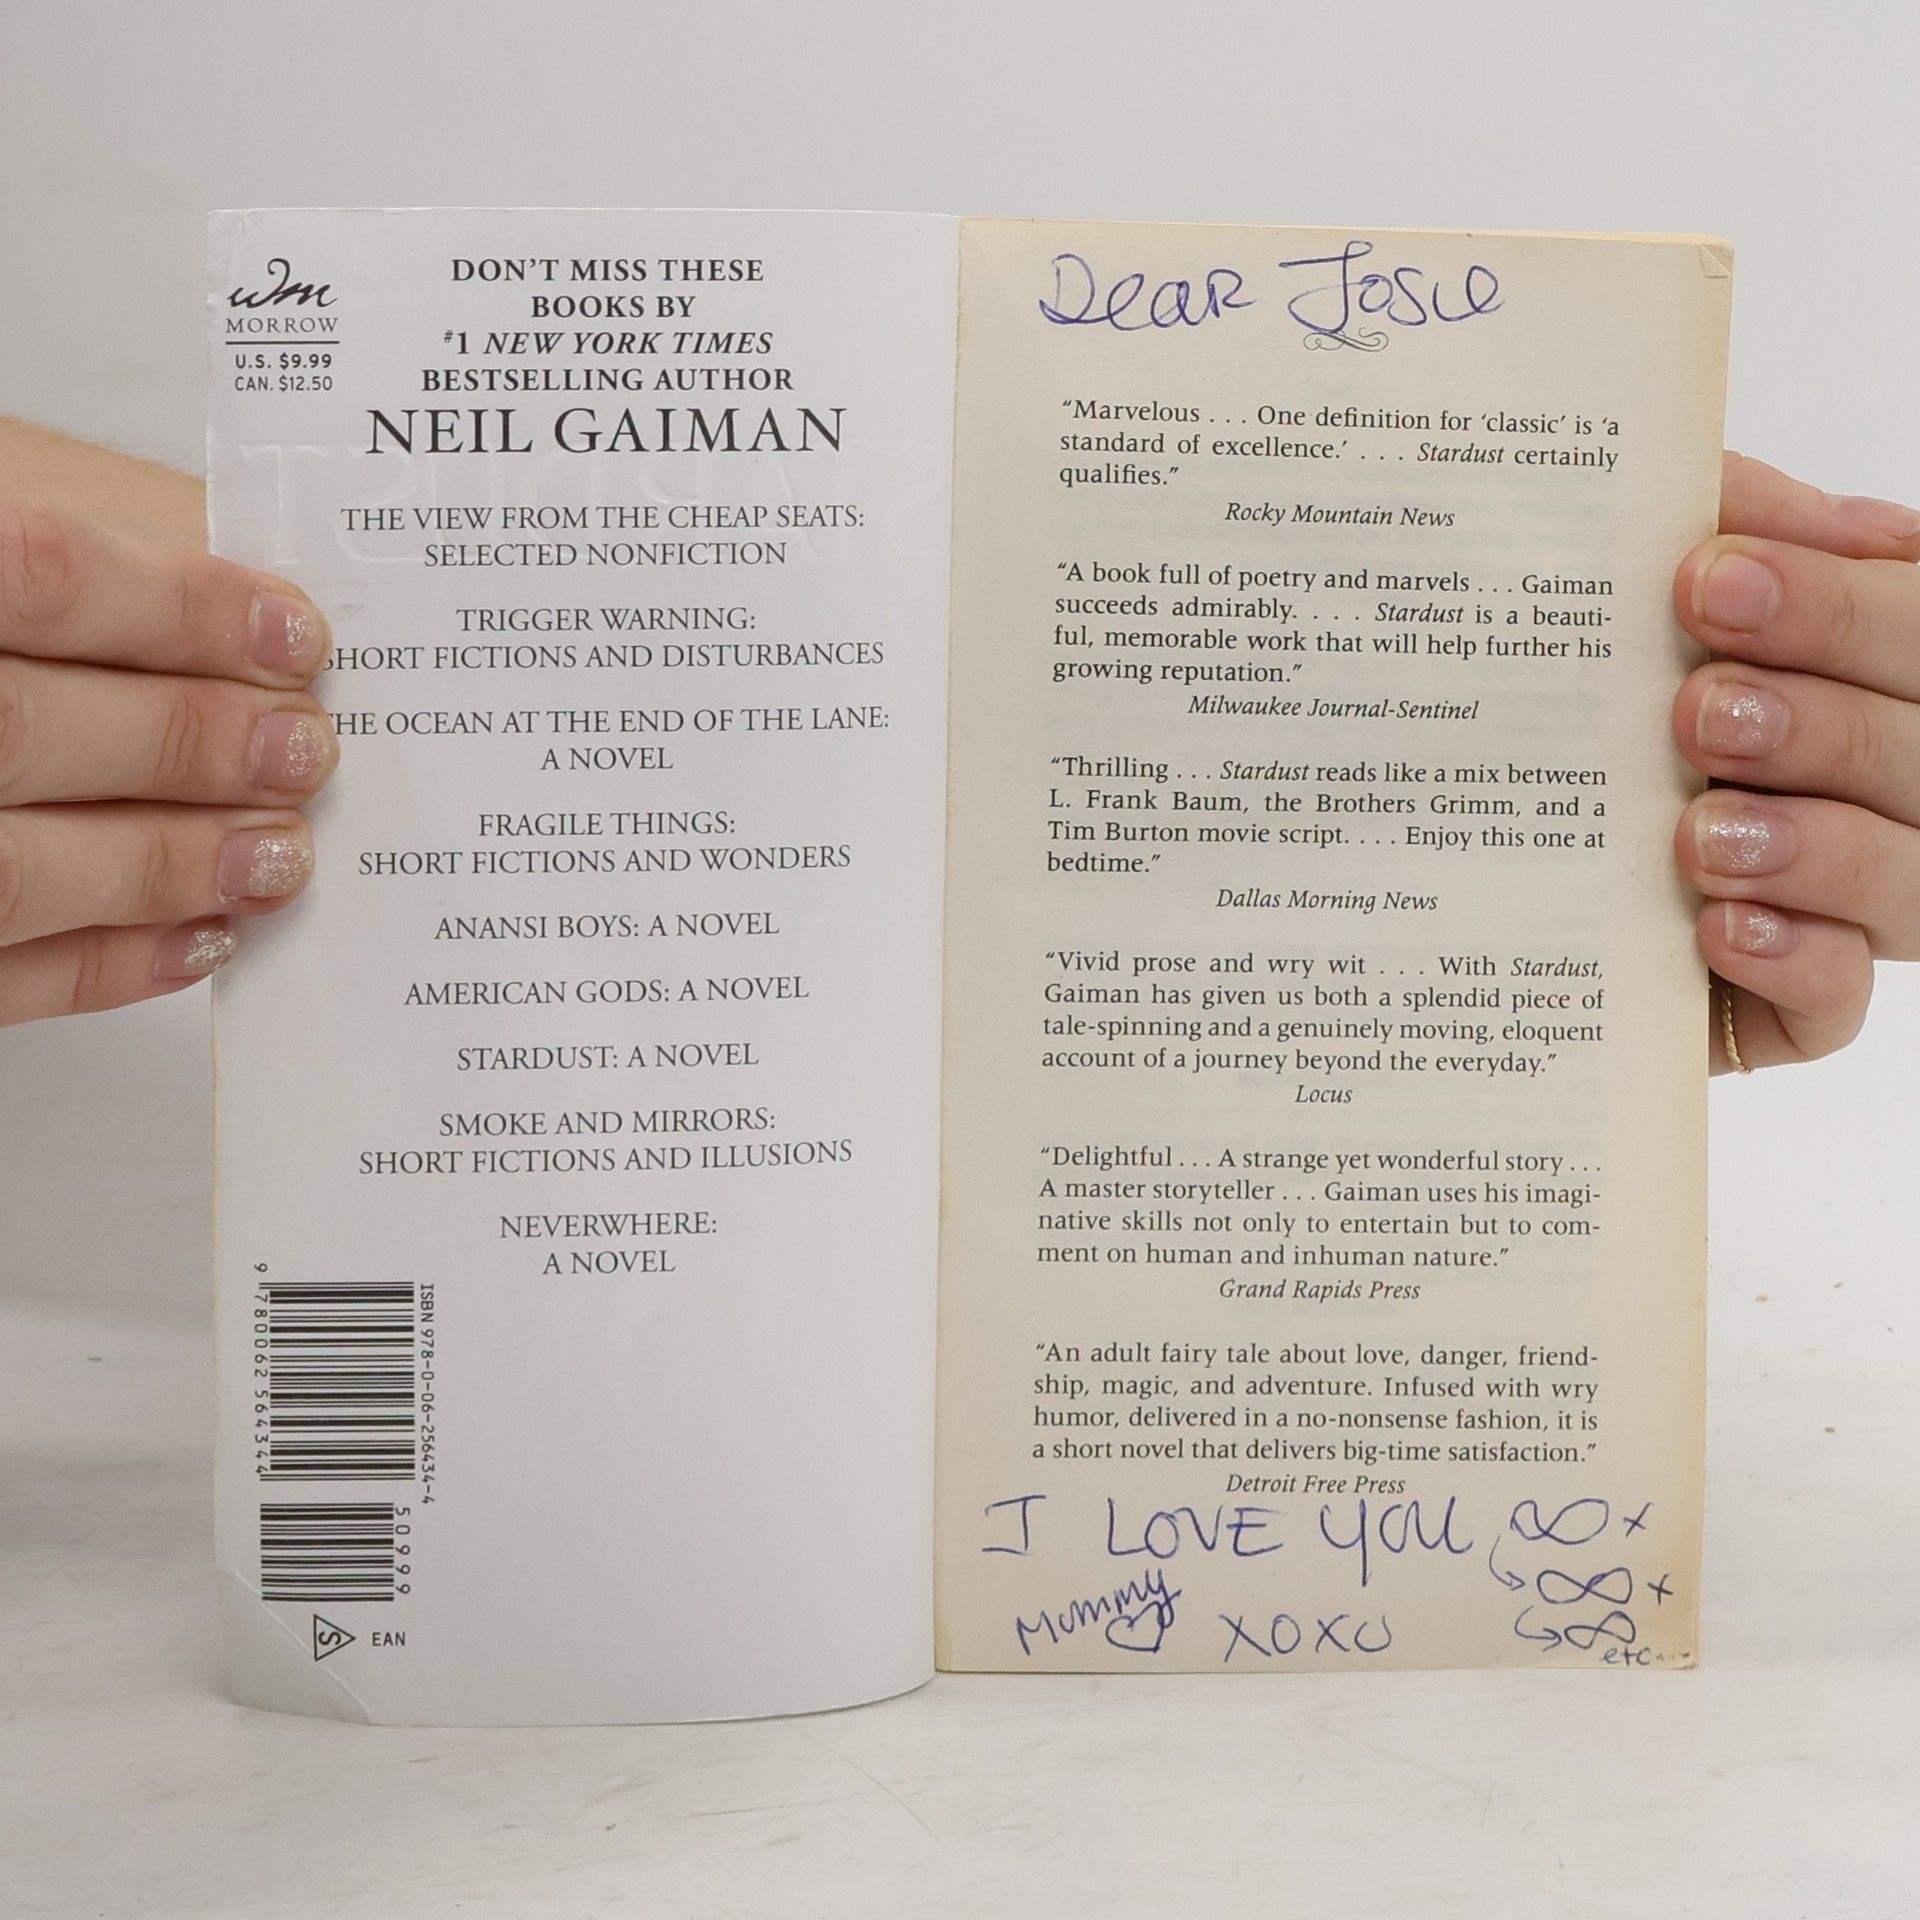 wm
MORROW
U.S. $9.99
CAN. $12.50
DON'T MISS THESE
BOOKS BY
#1 NEW YORK TIMES
BESTSELLING AUTHOR
NEIL GAIMAN
THE VIEW FROM THE CHEAP SEATS:
SELECTED NONFICTION
TRIGGER WARNING:
SHORT FICTIONS AND DISTURBANCES
THE OCEAN AT THE END OF THE LANE:
A NOVEL
FRAGILE THINGS:
SHORT FICTIONS AND WONDERS
ANANSI BOYS: A NOVEL
AMERICAN GODS: A NOVEL
STARDUST: A NOVEL
SMOKE AND MIRRORS:
SHORT FICTIONS AND ILLUSIONS
NEVERWHERE:
A NOVEL
ISBN 978-0-06-256434-4
9 780062 564344
50999
S EAN
Dear Josie
“Marvelous . . . One definition for ‘classic’ is ‘a
standard of excellence.’ . . . Stardust certainly
qualifies.”
Rocky Mountain News
“A book full of poetry and marvels . . . Gaiman
succeeds admirably. . . . Stardust is a beauti-
ful, memorable work that will help further his
growing reputation.”
Milwaukee Journal-Sentinel
“Thrilling . . . Stardust reads like a mix between
L. Frank Baum, the Brothers Grimm, and a
Tim Burton movie script. . . . Enjoy this one at
bedtime.”
Dallas Morning News
“Vivid prose and wry wit . . . With Stardust,
Gaiman has given us both a splendid piece of
tale-spinning and a genuinely moving, eloquent
account of a journey beyond the everyday.”
Locus
“Delightful . . . A strange yet wonderful story . . .
A master storyteller . . . Gaiman uses his imagi-
native skills not only to entertain but to com-
ment on human and inhuman nature.”
Grand Rapids Press
“An adult fairy tale about love, danger, friend-
ship, magic, and adventure. Infused with wry
humor, delivered in a no-nonsense fashion, it is
a short novel that delivers big-time satisfaction.”
Detroit Free Press
I LOVE YOU ∞ x
∞ x
∞
etc...
Mommy ♡ XOXO